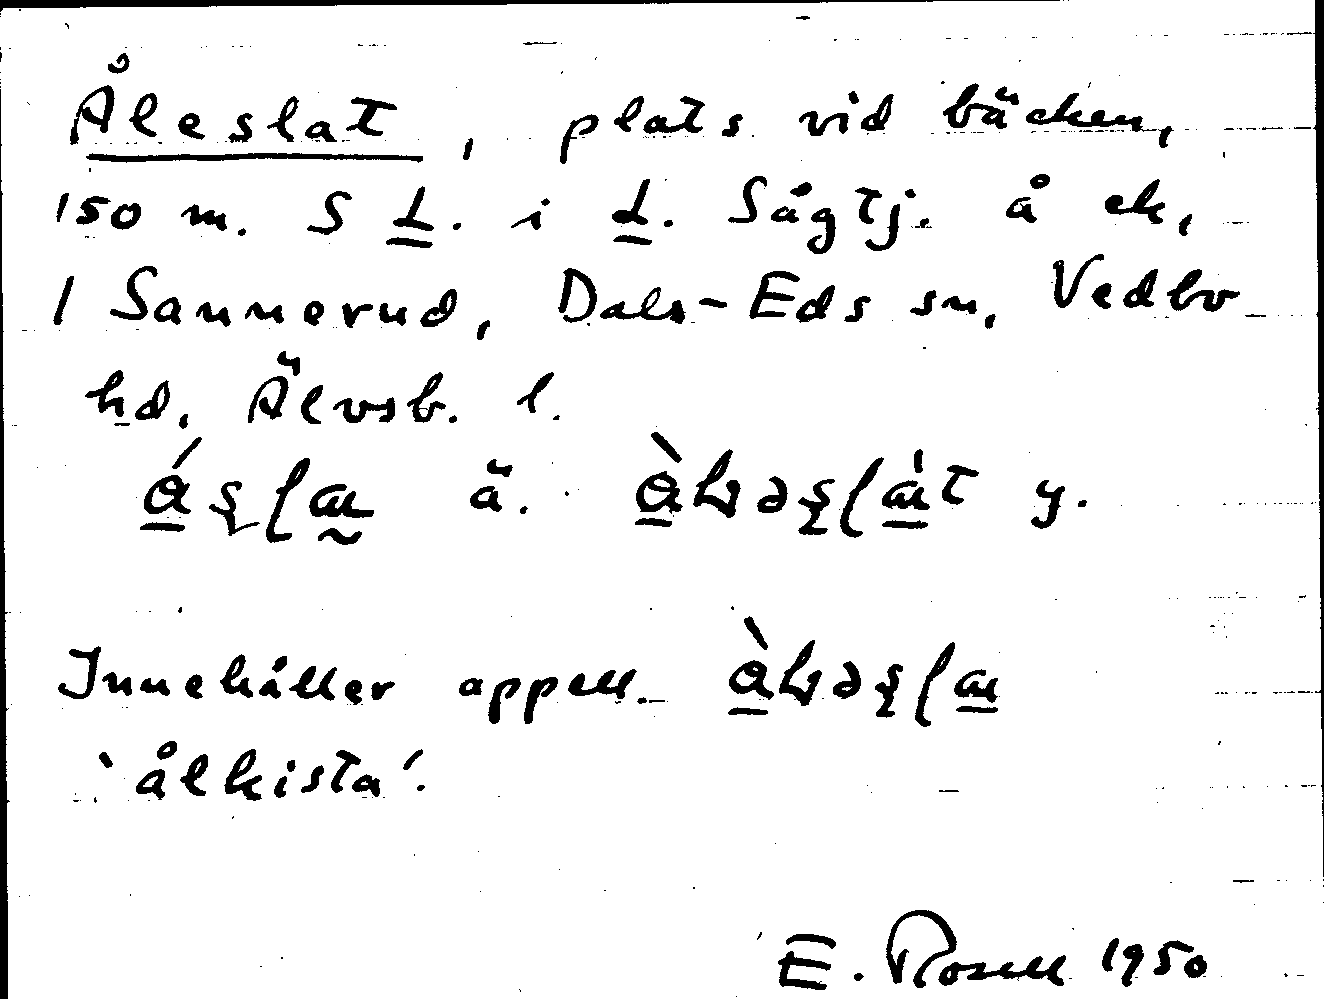 Åleslat, plats vid bäcken,
150 m. S L. i L. Sågtj. å ek,
1 Sannerud, Dals-Eds sn, Vedbo
hd, Älvsb. l.
ä. y.
Innehåller appell.
'ålkista'.
E. Rosell 1950